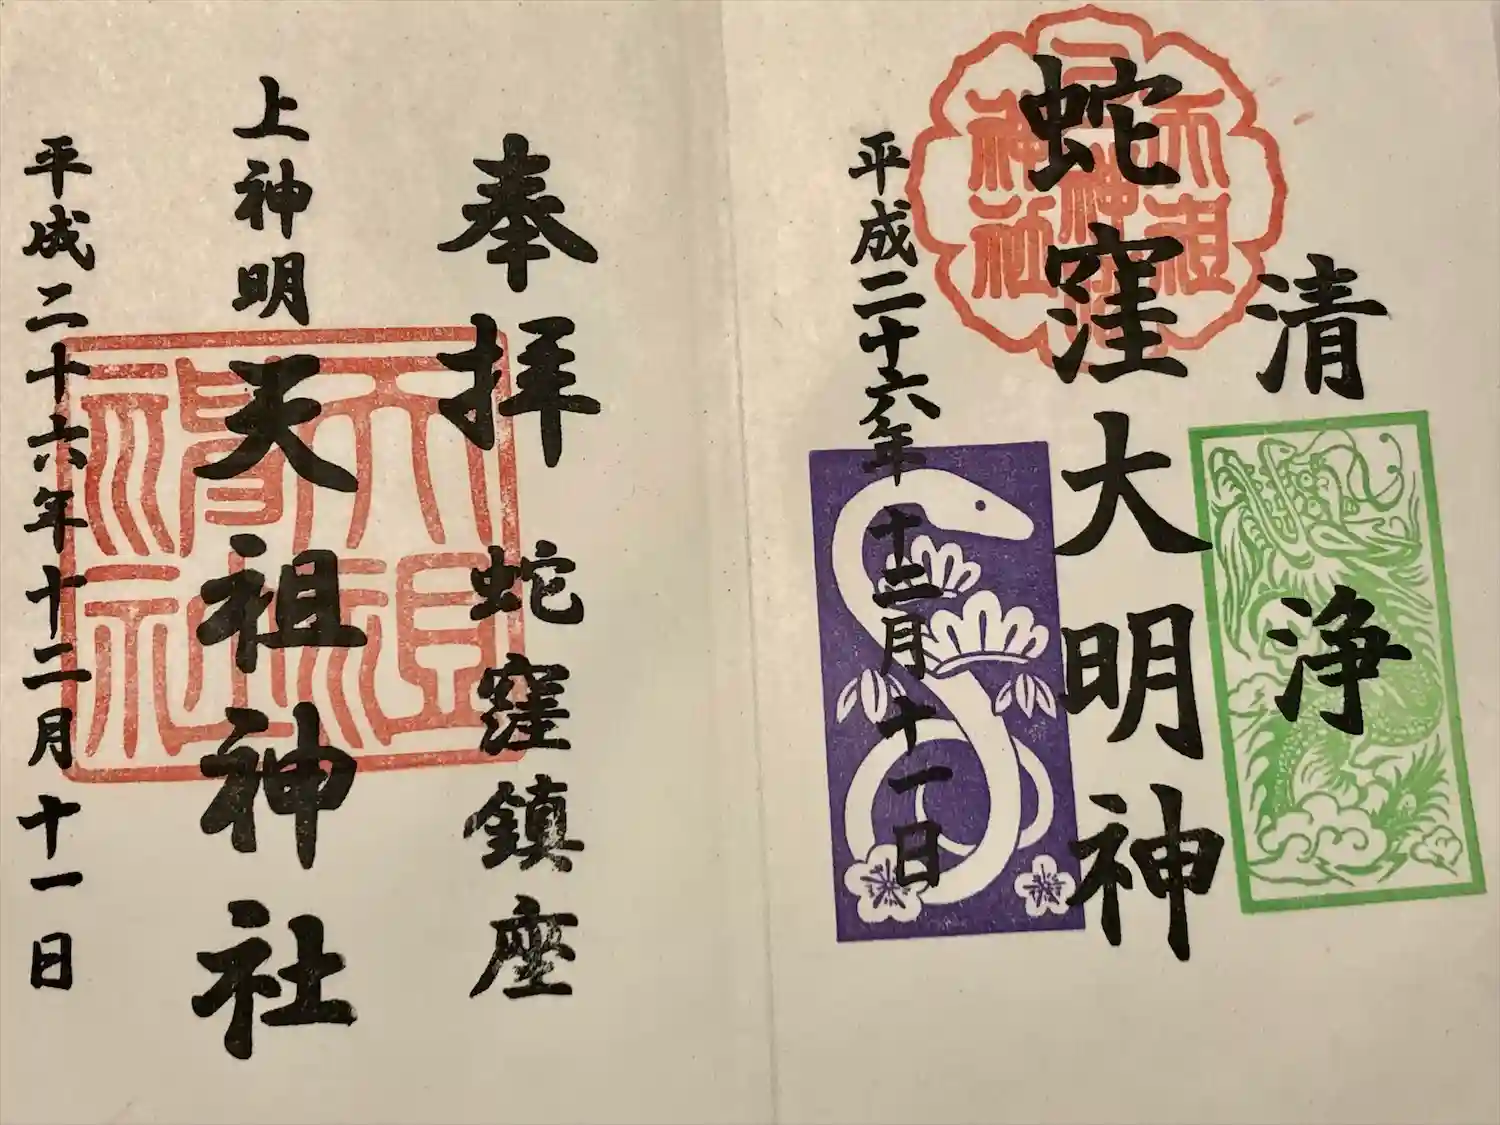 清浄
蛇窪大明神
平成二十六年十二月十一日
奉拝 蛇窪鎮座
上神明天祖神社
平成二十六年十二月十一日
天祖神社